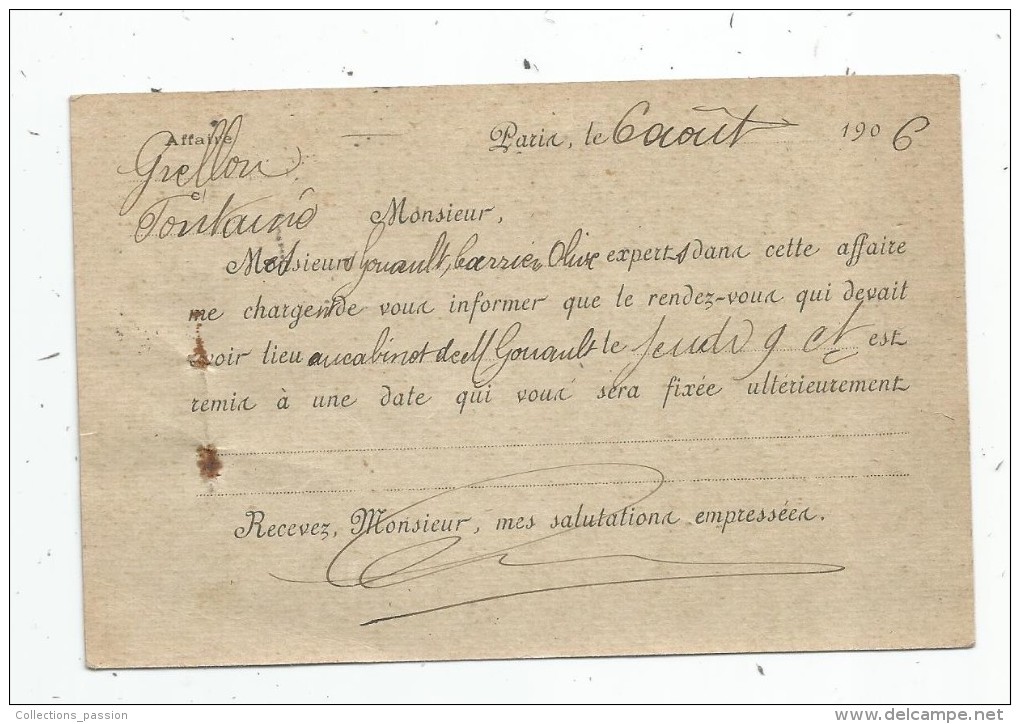 Affaire
Grellou
c/
Fontaine
Paris, le 6 août 1906
Monsieur,
Messieurs Gouault, Carrier, Olive experts dans cette affaire
me chargent de vous informer que le rendez-vous qui devait
avoir lieu au cabinet de M Gouault le jeudi 9 ct est
remis à une date qui vous sera fixée ultérieurement
Recevez, Monsieur, mes salutations empressées.
Collections_passion
www.delcampe.net